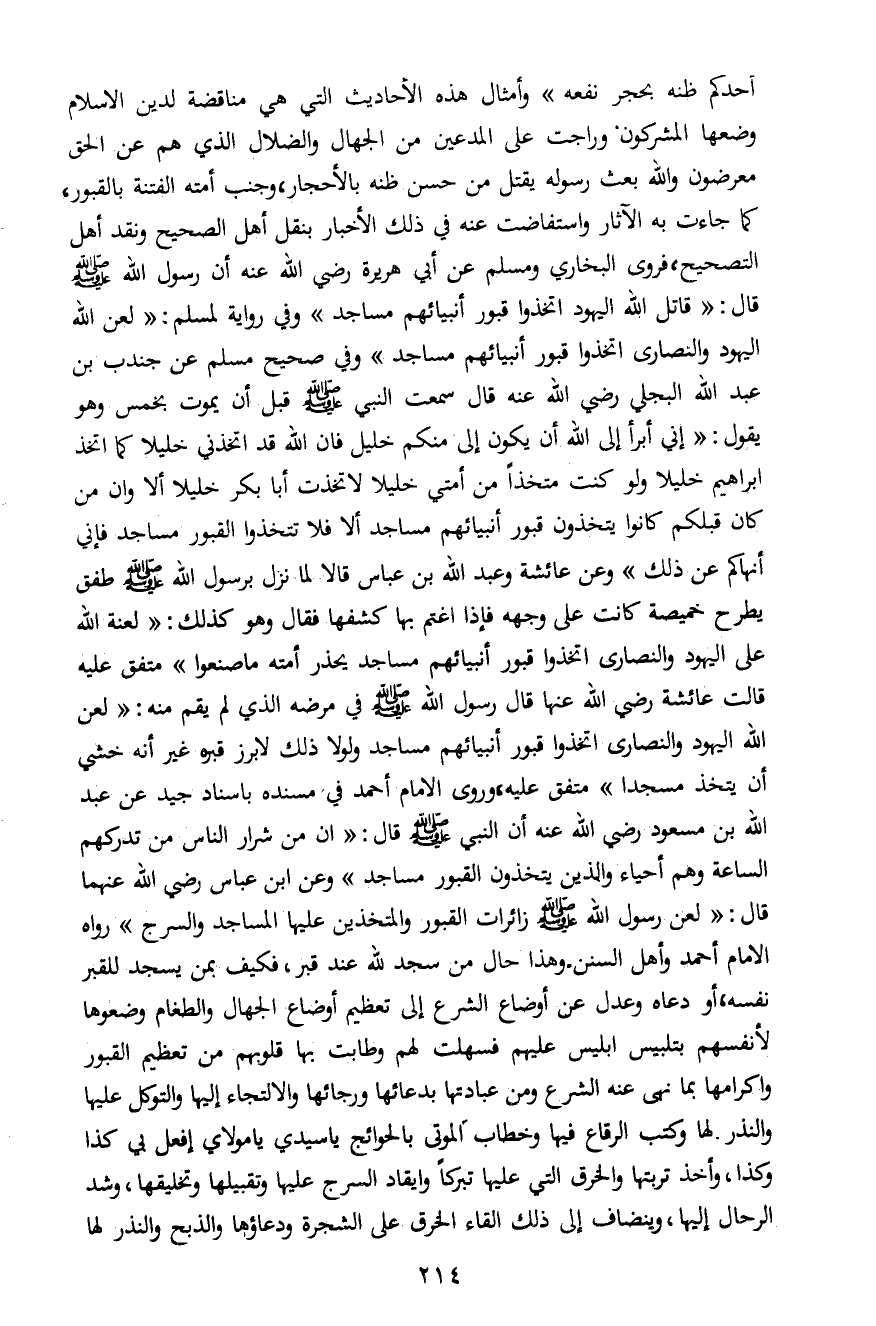 أحدكم ظنه بحجر نفعه » وأمثال هذه الأحاديث التي هي مناقضة لدين الاسلام
وضعها المشركون وراجت على المدعين من الجهال والضلال الذي هم عن الحق
معرضون والله بعث رسوله يقتل من حسن ظنه بالأحجار، وجنب أمته الفتنة بالقبور،
كما جاءت به الآثار واستفاضت عنه في ذلك الأخبار بنقل أهل الصحيح ونقد أهل
التصحيح، فروى البخاري ومسلم عن أبي هريرة رضي الله عنه أن رسول الله ﷺ
قال : « قاتل الله اليهود اتخذوا قبور أنبيائهم مساجد » وفي رواية لمسلم : « لعن الله
اليهود والنصارى اتخذوا قبور أنبيائهم مساجد » وفي صحيح مسلم عن جندب بن
عبد الله البجلي رضي الله عنه قال سمعت النبي ﷺ قبل أن يموت بخمس وهو
يقول : « إني أبرأ إلى الله أن يكون إلى منكم خليل فان الله قد اتخذني خليلا كما اتخذ
ابراهيم خليلا ولو كنت متخذاً من أمتي خليلا لاتخذت أبا بكر خليلا ألا وان من
كان قبلكم كانوا يتخذون قبور أنبيائهم مساجد ألا فلا تتخذوا القبور مساجد فإني
أنهاكم عن ذلك » وعن عائشة وعبد الله بن عباس قالا لما نزل برسول الله ﷺ طفق
يطرح خميصة كانت على وجهه فإذا اغتم بها كشفها فقال وهو كذلك : « لعنة الله
على اليهود والنصارى اتخذوا قبور أنبيائهم مساجد يحذر أمته ماصنعوا » متفق عليه
قالت عائشة رضي الله عنها قال رسول الله ﷺ في مرضه الذي لم يقم منه : « لعن
الله اليهود والنصارى اتخذوا قبور أنبيائهم مساجد ولولا ذلك لابرز قبره غير أنه خشي
أن يتخذ مسجدا » متفق عليه، وروى الامام أحمد في مسنده باسناد جيد عن عبد
الله بن مسعود رضي الله عنه أن النبي ﷺ قال : « ان من شرار الناس من تدركهم
الساعة وهم أحياء والذين يتخذون القبور مساجد » وعن ابن عباس رضي الله عنهما
قال : « لعن رسول الله ﷺ زائرات القبور والمتخذين عليها المساجد والسرج » رواه
الامام أحمد وأهل السنن. وهذا حال من سجد لله عند قبر ، فكيف بمن يسجد للقبر
نفسه، أو دعاه وعدل عن أوضاع الشرع إلى تعظيم أوضاع الجهال والطغام وضعوها
لأنفسهم بتلبيس ابليس عليهم فسهلت لهم وطابت بها قلوبهم من تعظيم القبور
واكرامها بما نهى عنه الشرع ومن عبادتها بدعائها ورجائها والالتجاء إليها والتوكل عليها
والنذر لها وكتب الرقاع فيها وخطاب الموتى بالحوائج ياسيدي يامولاي إفعل بي كذا
وكذا ، وأخذ تربتها والخرق التي عليها تبركاً وايقاد السرج عليها وتقبيلها وتخليقها ، وشد
الرحال إليها ، وينضاف إلى ذلك القاء الخرق على الشجرة ودعاؤها والذبح والنذر لها
٢١٤